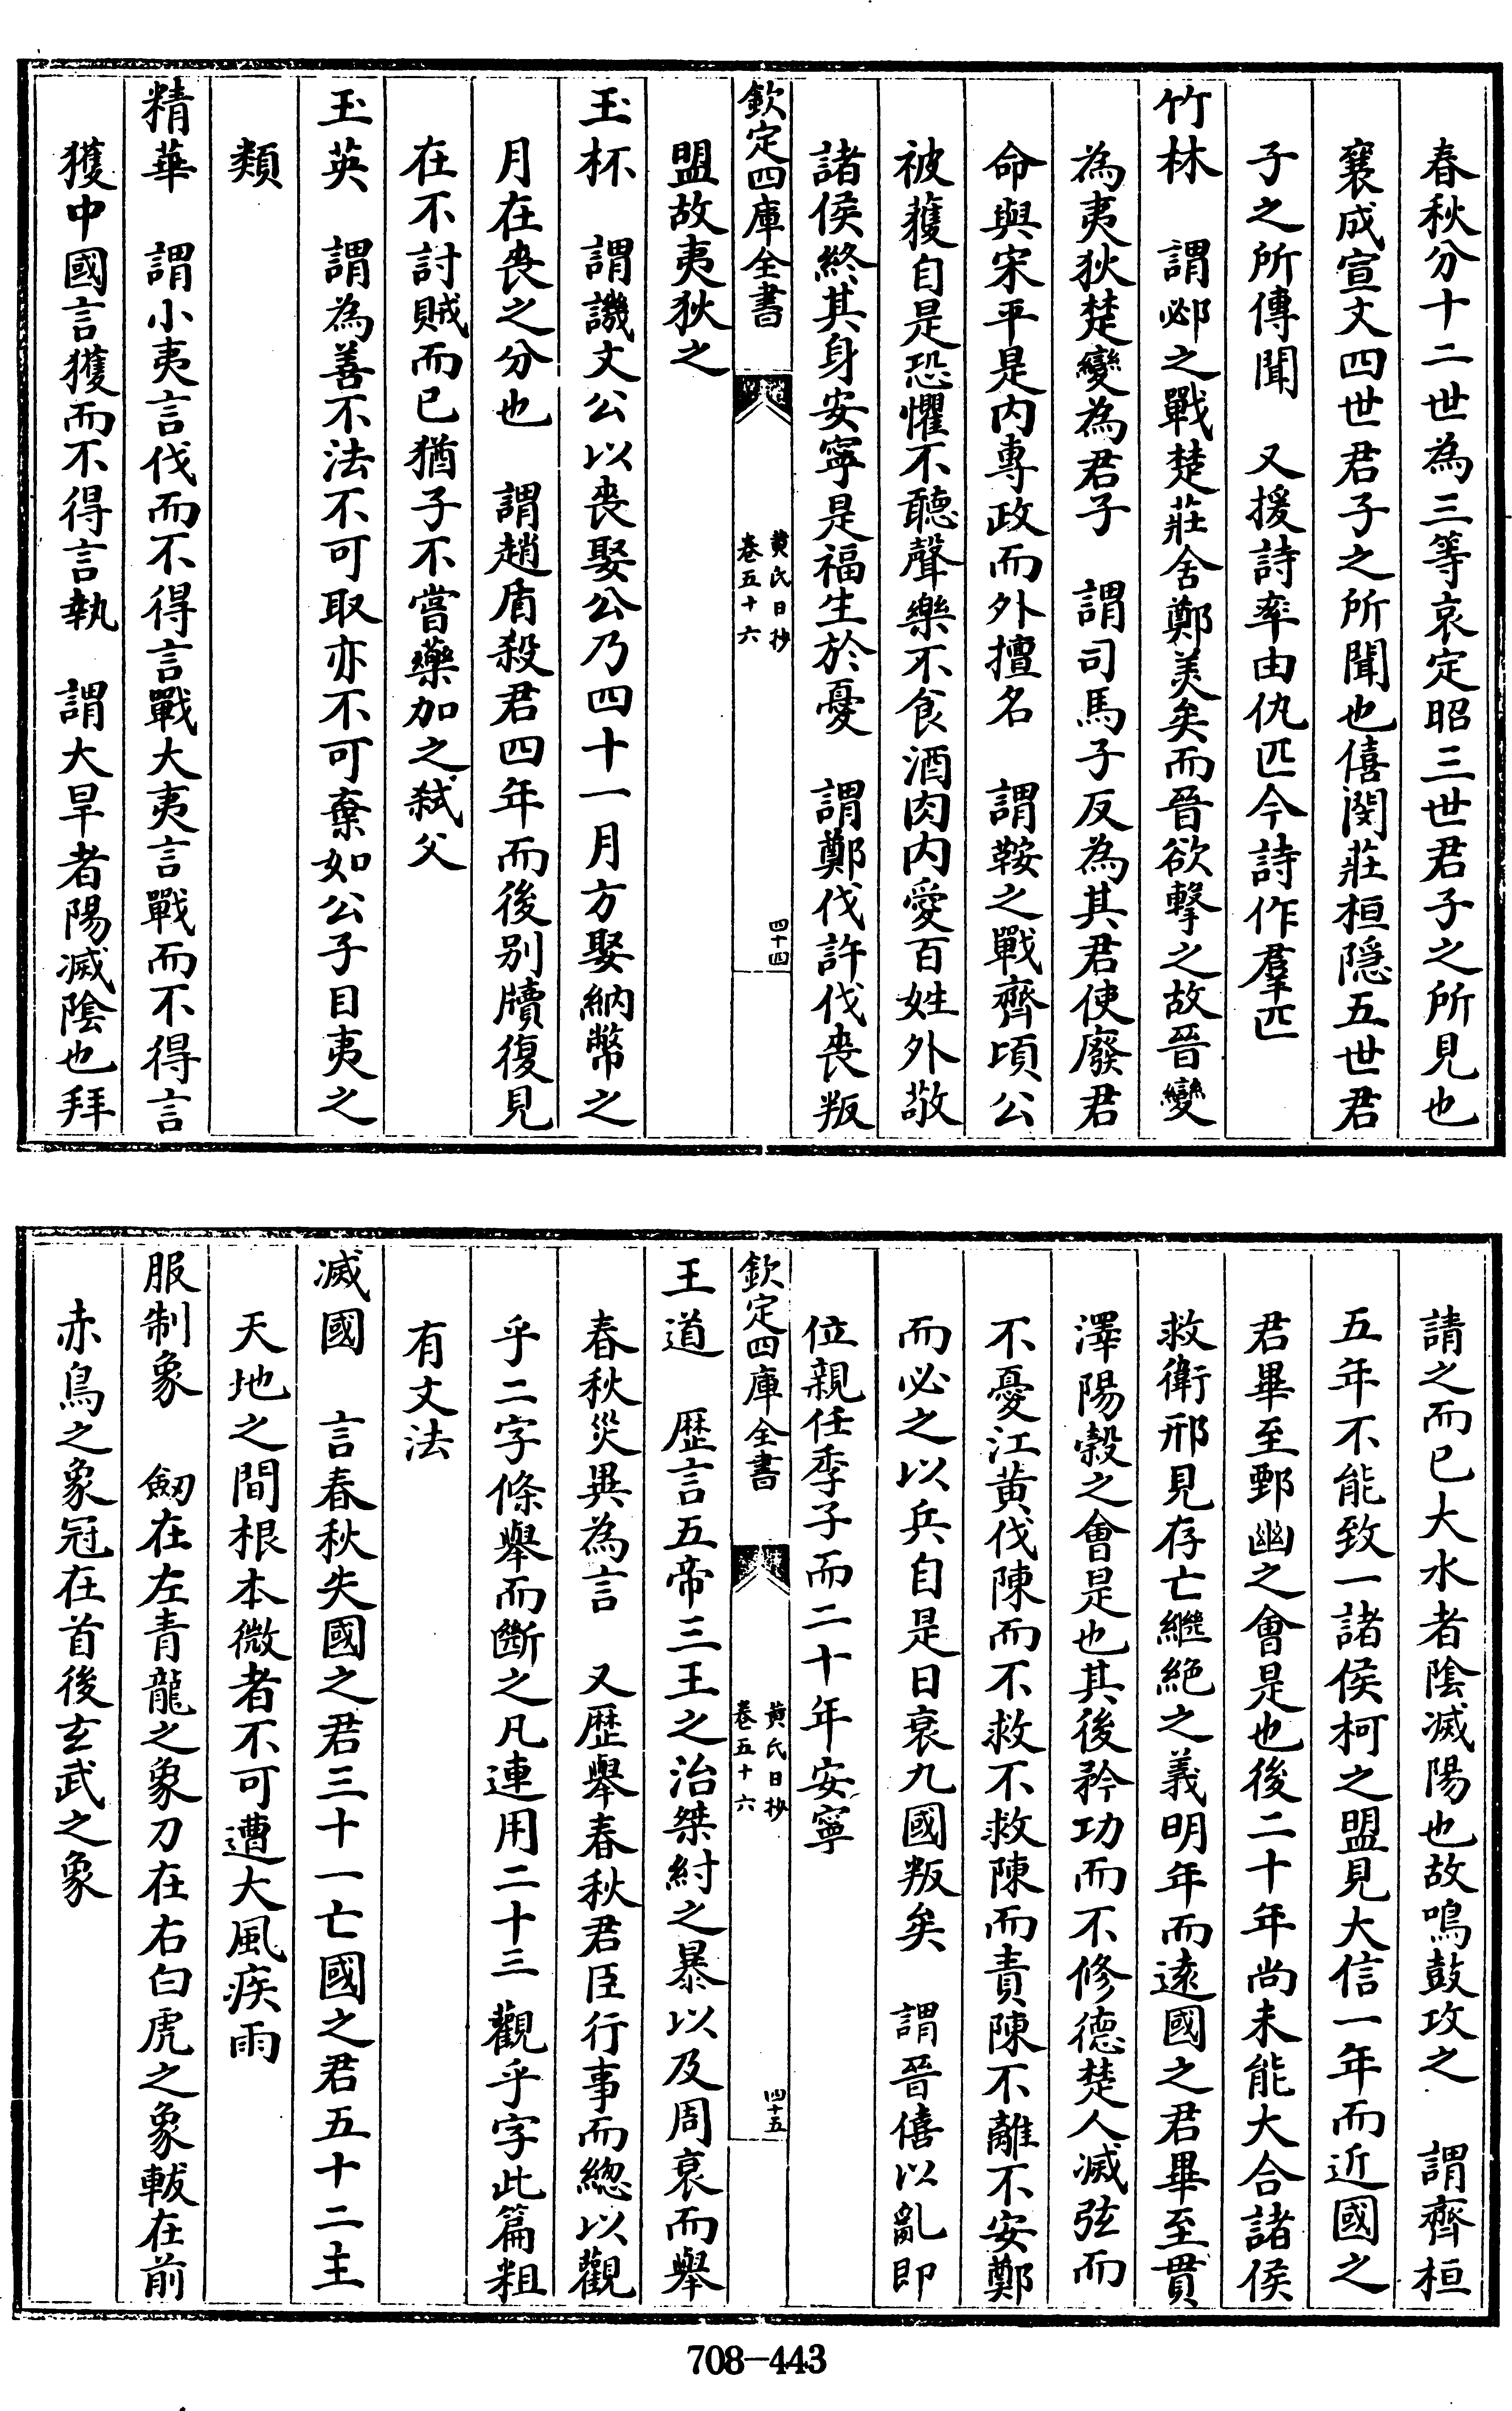 春秋分十二世為三等哀定昭三世君子之所見也
襄成宣文四世君子之所聞也僖閔莊桓隱五世君
子之所傳聞　又援詩率由仇匹今詩作羣匹
竹林　謂邲之戰楚莊舍鄭美矣而晉欲擊之故晉變
為夷狄楚變為君子　謂司馬子反為其君使廢君
命與宋平是内專政而外擅名　謂鞍之戰齊頃公
被獲自是恐懼不聽聲樂不食酒肉内愛百姓外敬
諸侯終其身安寧是福生於憂　謂鄭伐許伐喪叛
欽定四庫全書
黄氏日抄
卷五十六
四十四
盟故夷狄之
玉杯　謂譏文公以喪娶公乃四十一月方娶納幣之
月在喪之分也　謂趙盾殺君四年而後别牘復見
在不討賊而已猶子不嘗藥加之弑父
玉英　謂為善不法不可取亦不可棄如公子目夷之
類
精華　謂小夷言伐而不得言戰大夷言戰而不得言
獲中國言獲而不得言執　謂大旱者陽滅陰也拜
請之而已大水者陰滅陽也故鳴鼓攻之　謂齊桓
五年不能致一諸侯柯之盟見大信一年而近國之
君畢至鄄幽之會是也後二十年尚未能大合諸侯
救衛邢見存亡繼絶之義明年而逺國之君畢至貫
澤陽穀之會是也其後矜功而不修德楚人滅弦而
不憂江黄伐陳而不救不救陳而責陳不離不安鄭
而必之以兵自是日衰九國叛矣　謂晉僖以亂即
位親任季子而二十年安寧
欽定四庫全書
黄氏日抄
卷五十六
四十五
王道　歴言五帝三王之治桀紂之暴以及周衰而舉
春秋災異為言　又歴舉春秋君臣行事而總以觀
乎二字條舉而斷之凡連用二十三觀乎字此篇粗
有文法
滅國　言春秋失國之君三十一亡國之君五十二主
天地之間根本微者不可遭大風疾雨
服制象　劒在左青龍之象刀在右白虎之象韍在前
赤鳥之象冠在首後玄武之象
708-443